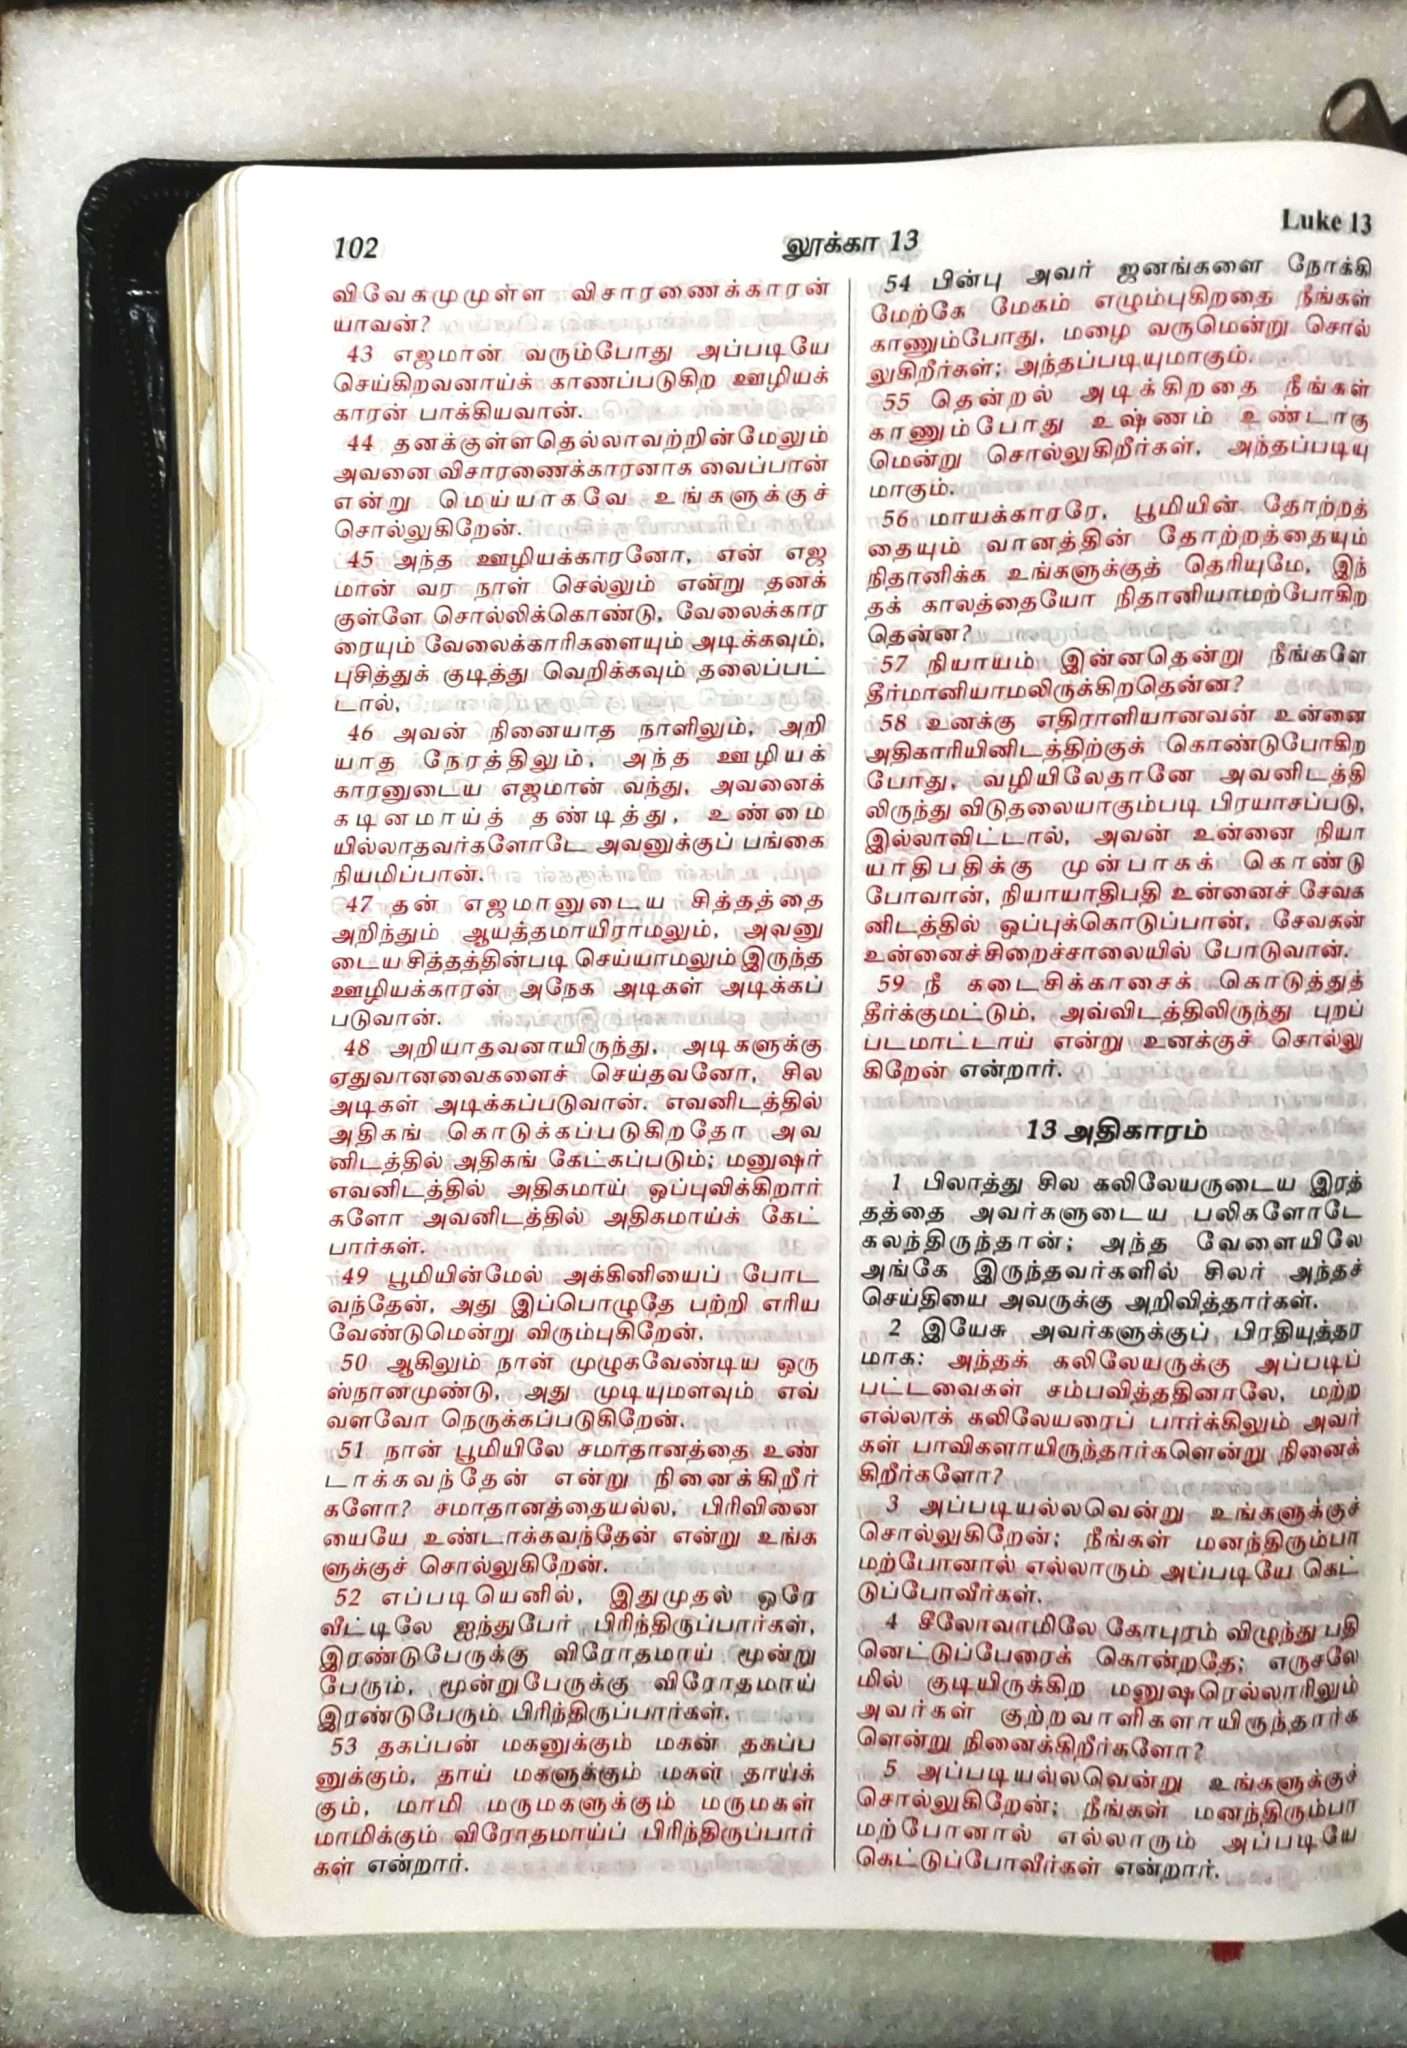 102
லூக்கா 13
Luke 13
விவேகமுமுள்ள விசாரணைக்காரன்
யாவன்?
43 எஜமான் வரும்போது அப்படியே
செய்கிறவனாய்க் காணப்படுகிற ஊழியக்
காரன் பாக்கியவான்.
44 தனக்குள்ளதெல்லாவற்றின்மேலும்
அவனை விசாரணைக்காரனாக வைப்பான்
என்று மெய்யாகவே உங்களுக்குச்
சொல்லுகிறேன்.
45 அந்த ஊழியக்காரனோ, என் எஜ
மான் வர நாள் செல்லும் என்று தனக்
குள்ளே சொல்லிக்கொண்டு, வேலைக்கார
ரையும் வேலைக்காரிகளையும் அடிக்கவும்,
புசித்துக் குடித்து வெறிக்கவும் தலைப்பட்
டால்,
46 அவன் நினையாத நாளிலும், அறி
யாத நேரத்திலும், அந்த ஊழியக்
காரனுடைய எஜமான் வந்து, அவனைக்
கடினமாய்த் தண்டித்து, உண்மை
யில்லாதவர்களோடே அவனுக்குப் பங்கை
நியமிப்பான்.
47 தன் எஜமானுடைய சித்தத்தை
அறிந்தும் ஆயத்தமாயிராமலும், அவனு
டைய சித்தத்தின்படி செய்யாமலும் இருந்த
ஊழியக்காரன் அநேக அடிகள் அடிக்கப்
படுவான்.
48 அறியாதவனாயிருந்து, அடிகளுக்கு
ஏதுவானவைகளைச் செய்தவனோ, சில
அடிகள் அடிக்கப்படுவான். எவனிடத்தில்
அதிகங் கொடுக்கப்படுகிறதோ அவ
னிடத்தில் அதிகங் கேட்கப்படும்; மனுஷர்
எவனிடத்தில் அதிகமாய் ஒப்புவிக்கிறார்
களோ அவனிடத்தில் அதிகமாய்க் கேட்
பார்கள்.
49 பூமியின்மேல் அக்கினியைப் போட
வந்தேன், அது இப்பொழுதே பற்றி எரிய
வேண்டுமென்று விரும்புகிறேன்.
50 ஆகிலும் நான் முழுகவேண்டிய ஒரு
ஸ்நானமுண்டு, அது முடியுமளவும் எவ்
வளவோ நெருக்கப்படுகிறேன்.
51 நான் பூமியிலே சமாதானத்தை உண்
டாக்கவந்தேன் என்று நினைக்கிறீர்
களோ? சமாதானத்தையல்ல, பிரிவினை
யையே உண்டாக்கவந்தேன் என்று உங்க
ளுக்குச் சொல்லுகிறேன்.
52 எப்படியெனில், இதுமுதல் ஒரே
வீட்டிலே ஐந்துபேர் பிரிந்திருப்பார்கள்,
இரண்டுபேருக்கு விரோதமாய் மூன்று
பேரும், மூன்றுபேருக்கு விரோதமாய்
இரண்டுபேரும் பிரிந்திருப்பார்கள்.
53 தகப்பன் மகனுக்கும் மகன் தகப்ப
னுக்கும், தாய் மகளுக்கும் மகள் தாய்க்
கும், மாமி மருமகளுக்கும் மருமகள்
மாமிக்கும் விரோதமாய்ப் பிரிந்திருப்பார்
கள் என்றார்.
54 பின்பு அவர் ஜனங்களை நோக்கி
மேற்கே மேகம் எழும்புகிறதை நீங்கள்
காணும்போது, மழை வருமென்று சொல்
லுகிறீர்கள்; அந்தப்படியுமாகும்.
55 தென்றல் அடிக்கிறதை நீங்கள்
காணும்போது உஷ்ணம் உண்டாகு
மென்று சொல்லுகிறீர்கள், அந்தப்படியு
மாகும்.
56 மாயக்காரரே, பூமியின் தோற்றத்
தையும் வானத்தின் தோற்றத்தையும்
நிதானிக்க உங்களுக்குத் தெரியுமே, இந்
தக் காலத்தையோ நிதானியாமற்போகிற
தென்ன?
57 நியாயம் இன்னதென்று நீங்களே
தீர்மானியாமலிருக்கிறதென்ன?
58 உனக்கு எதிராளியானவன் உன்னை
அதிகாரியினிடத்திற்குக் கொண்டுபோகிற
போது, வழியிலேதானே அவனிடத்தி
லிருந்து விடுதலையாகும்படி பிரயாசப்படு,
இல்லாவிட்டால், அவன் உன்னை நியா
யாதிபதிக்கு முன்பாகக் கொண்டு
போவான், நியாயாதிபதி உன்னைச் சேவக
னிடத்தில் ஒப்புக்கொடுப்பான், சேவகன்
உன்னைச்சிறைச்சாலையில் போடுவான்.
59 நீ கடைசிக்காசைக் கொடுத்துத்
தீர்க்குமட்டும், அவ்விடத்திலிருந்து புறப்
படமாட்டாய் என்று உனக்குச் சொல்லு
கிறேன் என்றார்.
13 அதிகாரம்
1 பிலாத்து சில கலிலேயருடைய இரத்
தத்தை அவர்களுடைய பலிகளோடே
கலந்திருந்தான்; அந்த வேளையிலே
அங்கே இருந்தவர்களில் சிலர் அந்தச்
செய்தியை அவருக்கு அறிவித்தார்கள்.
2 இயேசு அவர்களுக்குப் பிரதியுத்தர
மாக: அந்தக் கலிலேயருக்கு அப்படிப்
பட்டவைகள் சம்பவித்ததினாலே, மற்ற
எல்லாக் கலிலேயரைப் பார்க்கிலும் அவர்
கள் பாவிகளாயிருந்தார்களென்று நினைக்
கிறீர்களோ?
3 அப்படியல்லவென்று உங்களுக்குச்
சொல்லுகிறேன்; நீங்கள் மனந்திரும்பா
மற்போனால் எல்லாரும் அப்படியே கெட்
டுப்போவீர்கள்.
4 சீலோவாமிலே கோபுரம் விழுந்து பதி
னெட்டுப்பேரைக் கொன்றதே; எருசலே
மில் குடியிருக்கிற மனுஷரெல்லாரிலும்
அவர்கள் குற்றவாளிகளாயிருந்தார்க
ளென்று நினைக்கிறீர்களோ?
5 அப்படியல்லவென்று உங்களுக்குச்
சொல்லுகிறேன்; நீங்கள் மனந்திரும்பா
மற்போனால் எல்லாரும் அப்படியே
கெட்டுப்போவீர்கள் என்றார்.